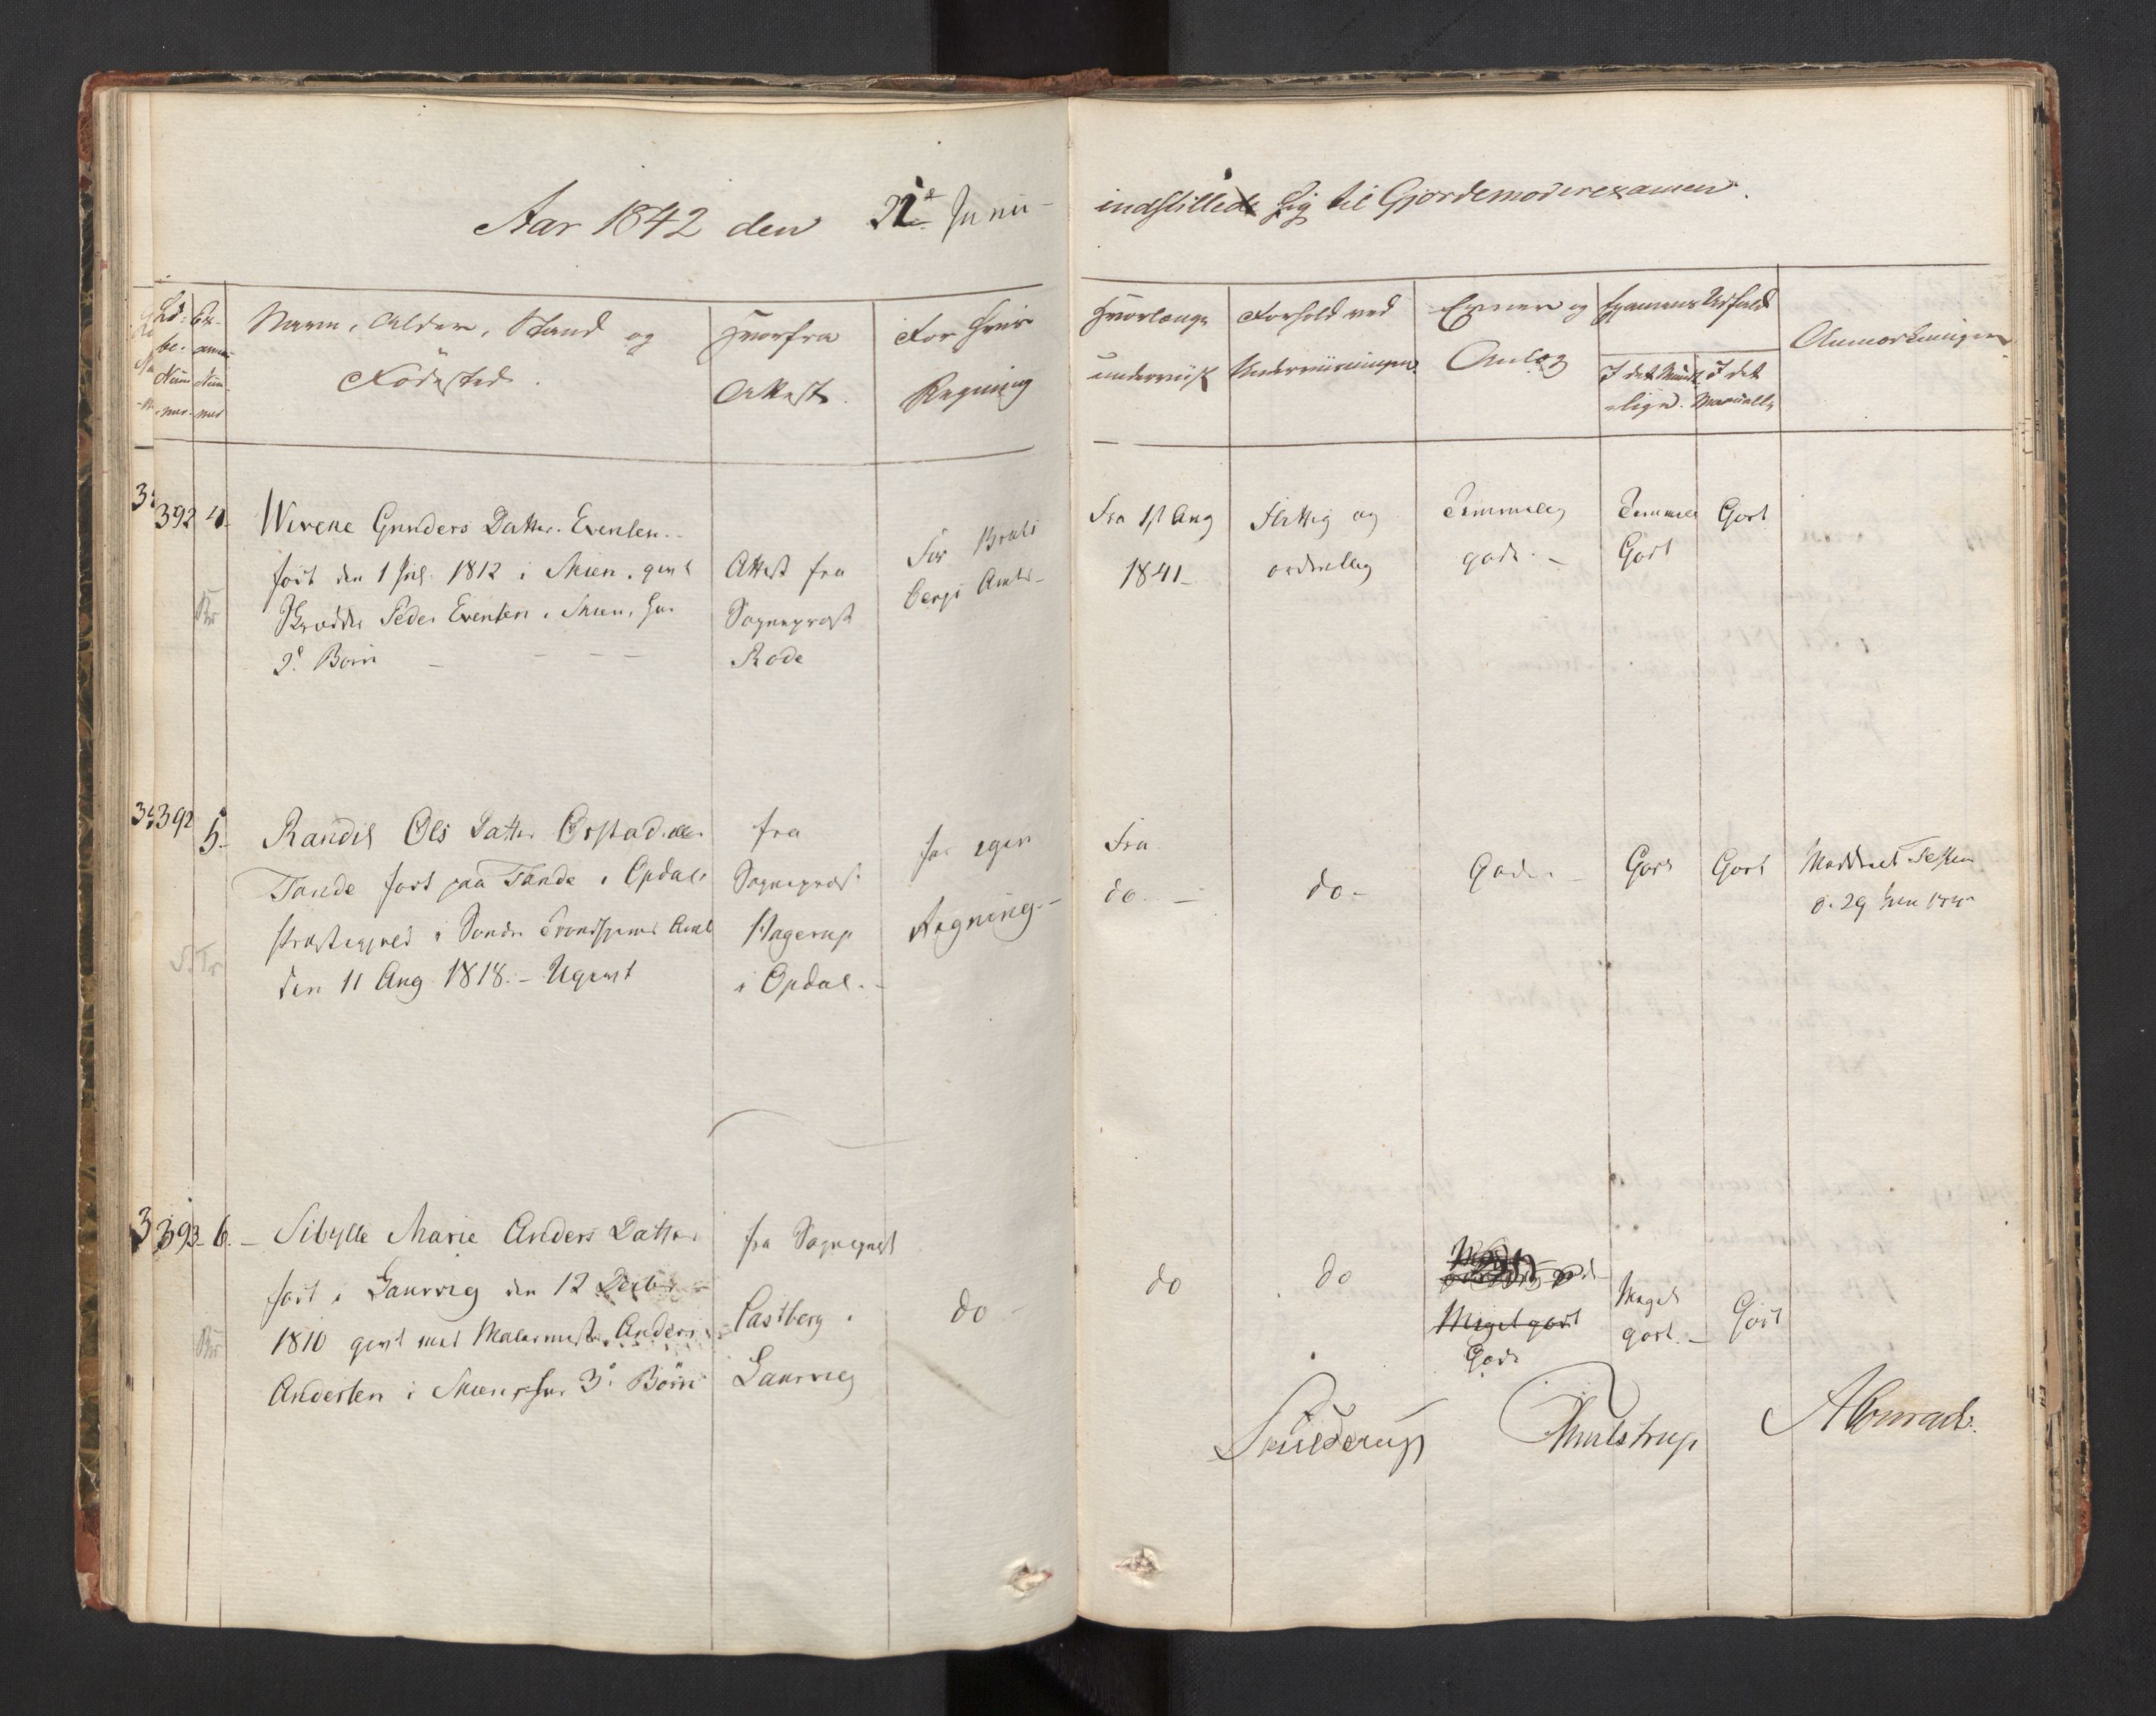 Aar 1842 den 21de Junii
indstillede sig til Gjordemoderexamen.
Lö-
be-
Num-
mer.
Ex-
amens
Num-
mer
Navn, Alder, Stand og
Födested.
Hvorfra
Attest.
For hvis
Regning
Hvorlænge
underviist
Forhold ved
Underviisningen.
Evner og
Anlæg
Examens Udfald
I det Mundt-
lige.
I det
Manuelle
Anmærkninger
392 4.
Wirene Gunders Datter Evensen.
född den 1 Juli 1812 i Skien. givt
Peder Evensen i Skien, har
2de Börn
Br
Attest fra
Sognepræst
Rode
For Brats
bergs Amts
Fra 1st Aug
1841
Flittig og
ordentlig
Temmelig
gode.
Temmel
Godt
Godt
392 5.
Randil Ols Datter Orstad eller
Tande född paa Tande i Opdals
Præstegjeld i Söndre Trondhjems Amt
den 11 Aug 1818. - Ugivt
S. Tr
fra
Sognepræst
Hagerup
i Opdal.
for egen
Regning.
Fra
do.
do.
Gode.
Godt
Godt
Meddeelt Testim
d. 29 Juni
393 6.
Sibylle Marie Anders Datter
född i Laurvig den 12 Decbr
1810 givt med Malermester Anders
Andersen i Skien, har 3de Börn
Br
fra Sognepræst
Castberg i
Laurvig
do
do
do
Meget godt
Gode
Meget
godt.
Godt
Skielderup Thulstrup AConradi